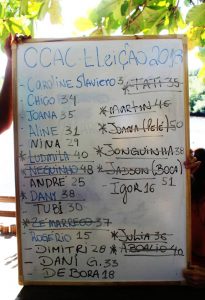 CCAC - LLeição 2013
- CAROLINE SLAVIERO 3
- CHICO 34
- JOANA 35
- ALINE 31
- NINA 29
* LUDMILA 40
* NEGUINHO 48
- ANDRE 25
* DANY 38
- TUBI 30
* ZE MARRECO 37
- ROGÉRIO 15
- DIMITRI 28
- DANI G. 33
- DEBORA 18
* TATI 35
* MARTIN 46
* JOANA (Pelé) 50
* JONGUINHA 38
* JADSON (BOCA)
IGOR 16 51
* JULIA 36
* ABOALIO 40